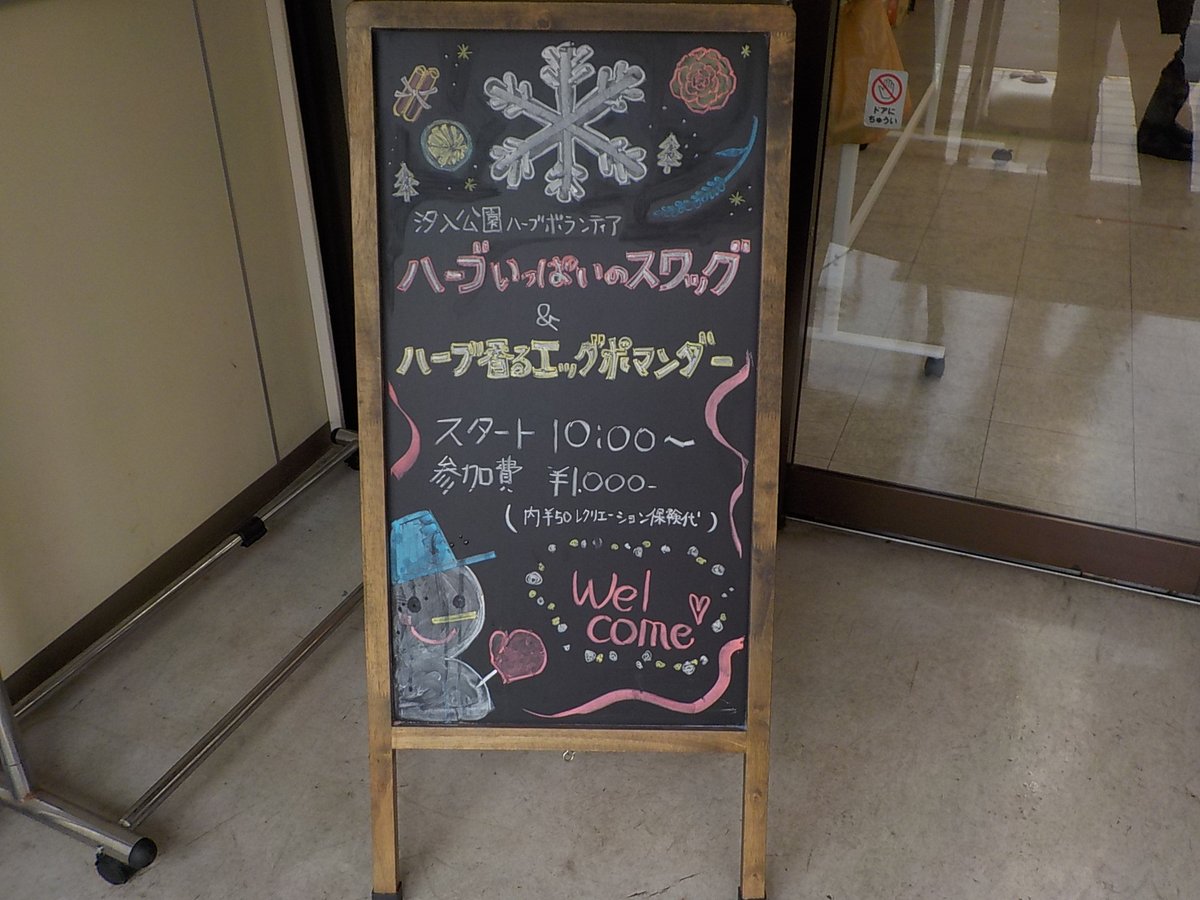 汐入公園ハーブボランティア
ハーブいっぱいのスワッグ
&
ハーブ香るエッグポマンダー
スタート 10:00～
参加費 ¥1.000-
(内¥50レクリエーション保険代)
Wel
come
ドアに
ちゅうい